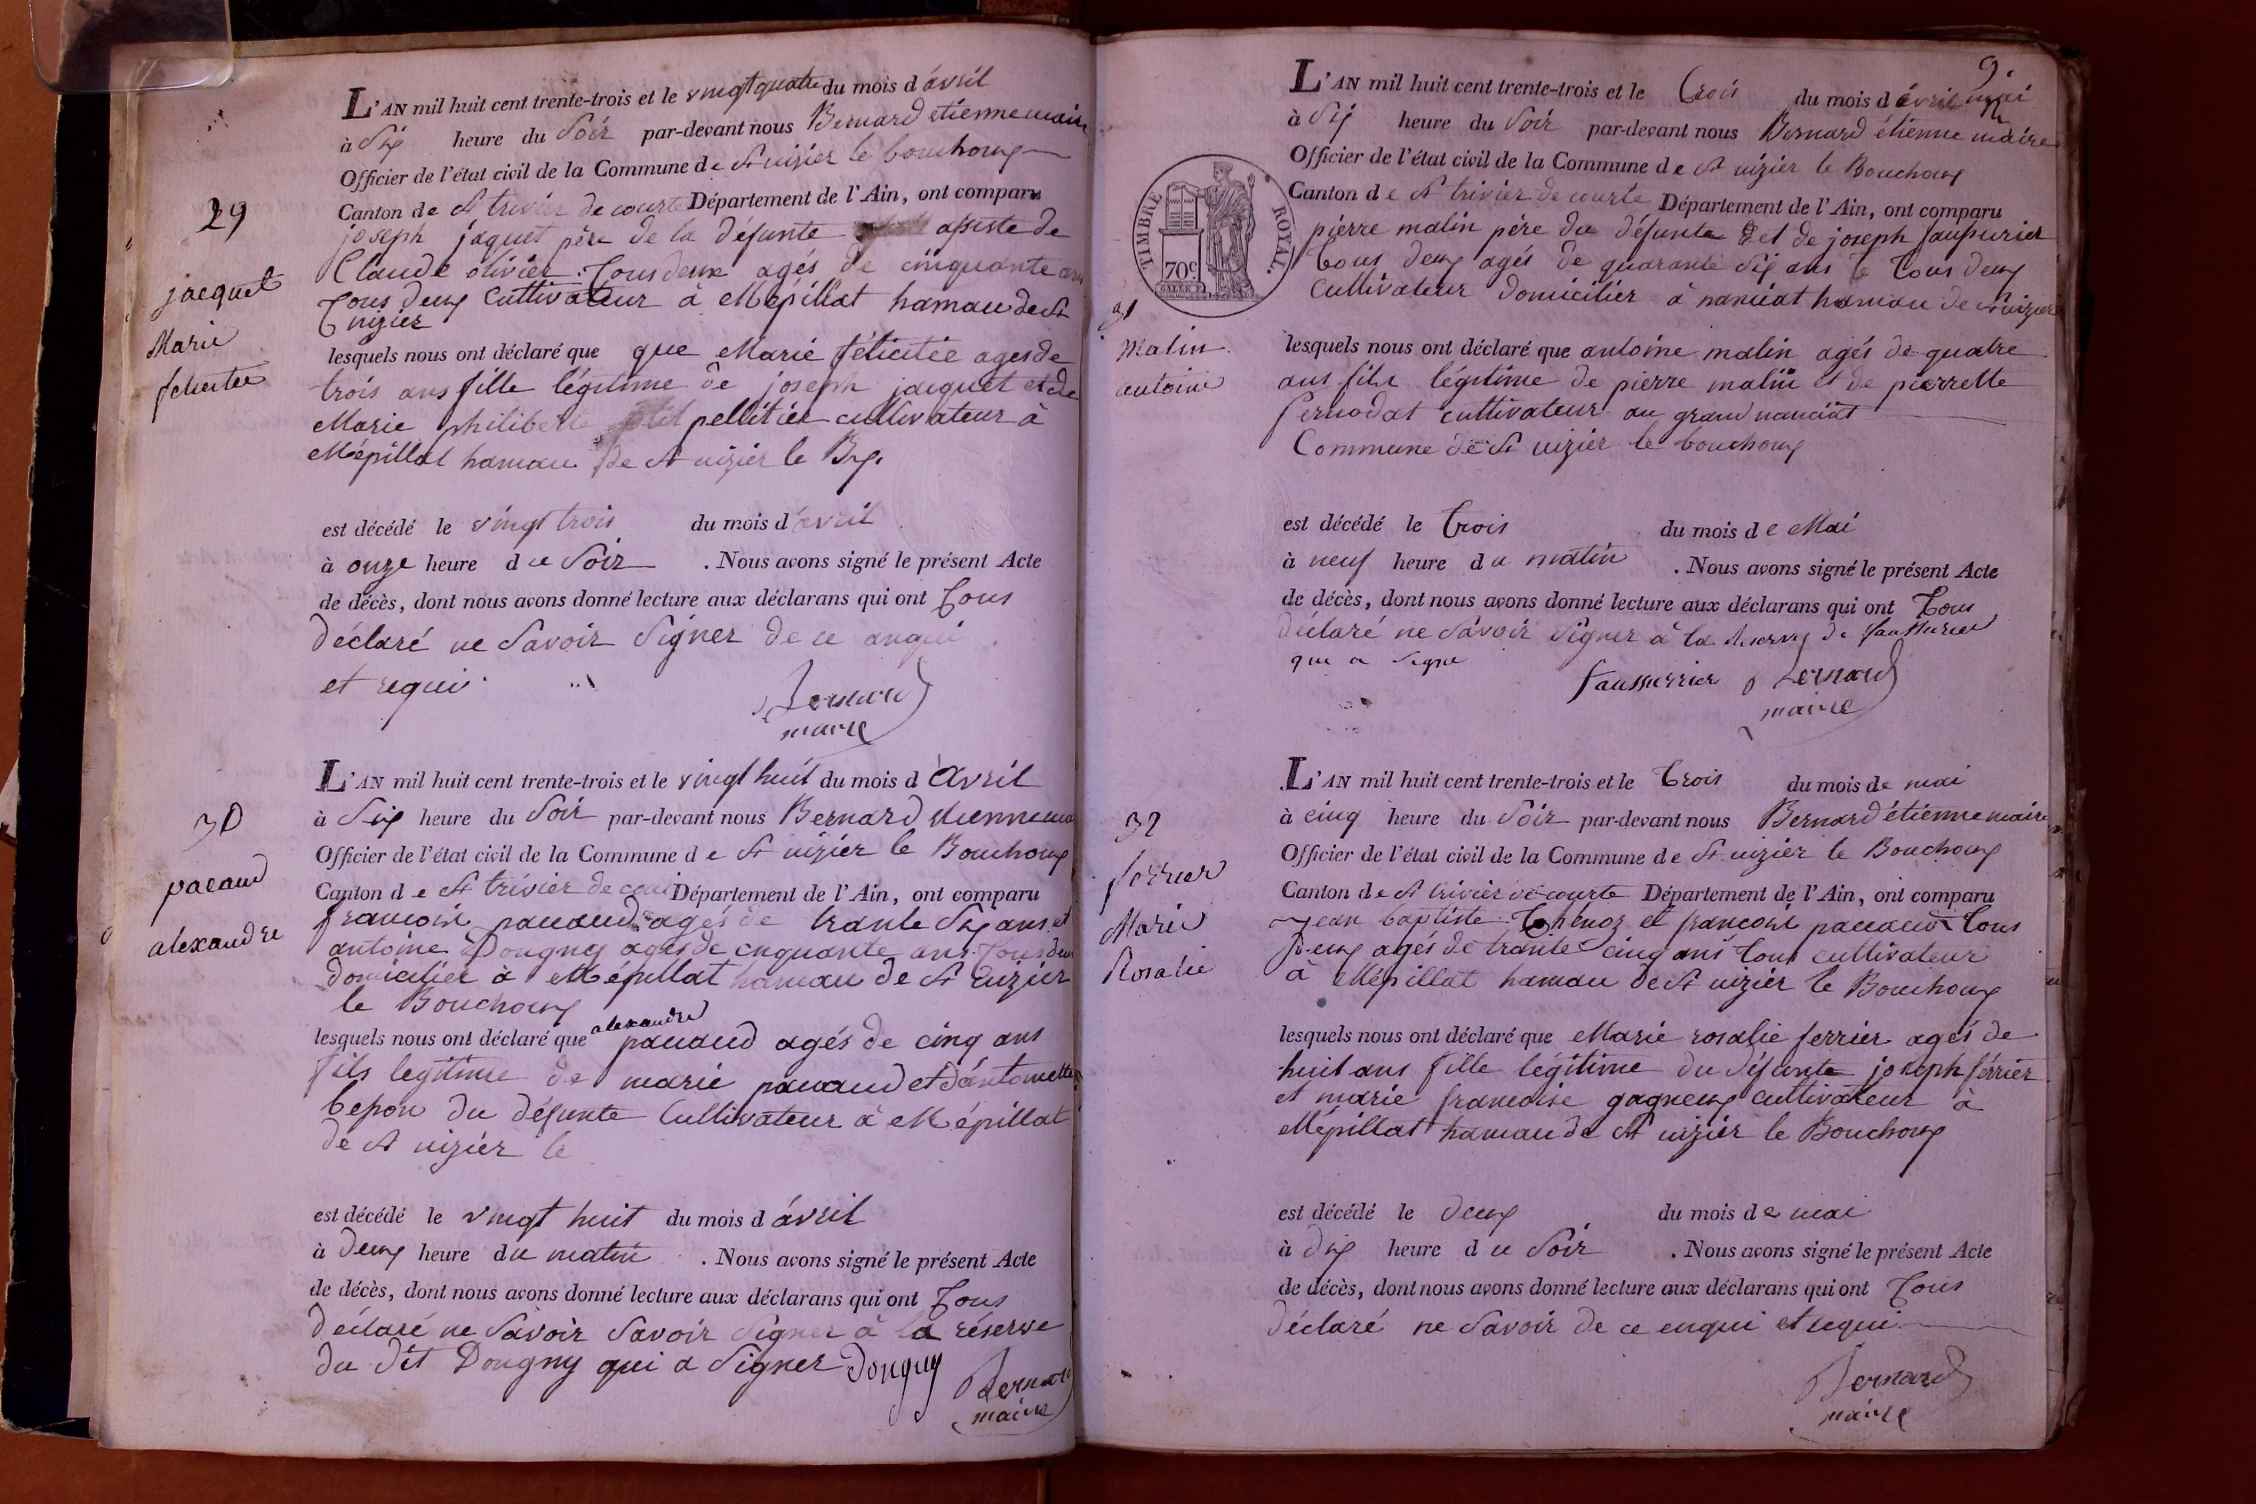 L'AN mil huit cent trente-trois et le vingt quatre du mois d'avril
à Six heure du Soir par-devant nous Bernard étienne maire
Officier de l'état civil de la Commune de St nizier le bouchoux
Canton de St trivier de courte Département de l'Ain, ont comparu
joseph jaquet père de la défunte assiste de
Claude olivier tous deux agés de cinquante ans
tous deux Cultivateur à Mépillat hamau de St
nizier
29
jacquet
Marie
felicitee
lesquels nous ont déclaré que que Marie félicitée agés de
trois ans fille légitime de joseph jacquet et de
Marie philiberte pellitier cultivateur à
Mépillat hamau de St nizier le Bux
est décédé le vingt trois du mois d'avril
à onze heure du Soir . Nous avons signé le présent Acte
de décès, dont nous avons donné lecture aux déclarans qui ont Tous
déclaré ne Savoir Signer de ce anqui
et requi
Bernard
maire
L'AN mil huit cent trente-trois et le vingt huit du mois d'Avril
à Six heure du Soir par-devant nous Bernard étienne
Officier de l'état civil de la Commune de St nizier le Bouchoux
Canton de St trivier de cour Département de l'Ain, ont comparu
30
pacaud
alexandre
francois pacaud agés de trante Six ans et
antoine Dougny agés de cnquante ans tous deux
Domicilier à Mépillat hamau de St nizier
le Bouchoux
lesquels nous ont déclaré que alexandre pacaud agés de cinq ans
fils legitime de marie pacaud et d'antoinette
bepoix du défunte Cultivateur à Mépillat
de St nizier le
est décédé le vingt huit du mois d'avril
à Deux heure du matin . Nous avons signé le présent Acte
de décès, dont nous avons donné lecture aux déclarans qui ont Tous
déclaré ne Savoir Savoir Signer à la réserve
du dit Dougny qui a Signer Dougny
Bernard
maire
9.
L'AN mil huit cent trente-trois et le trois du mois d avril mai
à Six heure du Soir par-devant nous Bernard étienne maire
Officier de l'état civil de la Commune de St nizier le Bouchoux
Canton de St trivier de courte Département de l'Ain, ont comparu
TIMBRE ROYAL.
70c
pierre malin père du défunte et de joseph faussurier
tous deux agés de quarante Six ans tous deux
Cultivateur domicilier à nanciat hamau de St nizier
31
Malin
antoine
lesquels nous ont déclaré que antoine malin agés de quatre
ans fils légitime de pierre malin et de pierrette
pernodat cultivateur au grand nanciat
Commune de St nizier le bouchoux
est décédé le trois du mois de Mai
à neuf heure du matin . Nous avons signé le présent Acte
de décès, dont nous avons donné lecture aux déclarans qui ont Tous
déclaré ne Savoir Signer à la de faussurier
que a Signe
faussurrier Bernard
maire
L'AN mil huit cent trente-trois et le trois du mois de mai
à cinq heure du Soir par-devant nous Bernard étienne maire
Officier de l'état civil de la Commune de St nizier le Bouchoux
Canton de St trivier de courte Département de l'Ain, ont comparu
32
ferrier
Marie
Rosalie
Jean baptiste Thenoz et francois pacaud tous
Deux agés de trante cinq ans tous cultivateur
à Mépillat hamau de St nizier le Bouchoux
lesquels nous ont déclaré que Marie rosalie ferrier agés de
huit ans fille légitime du défunte joseph férrier
et marie francoise gagneux cultivateur à
Mépillat hamau de St nizier le Bouchoux
est décédé le deux du mois de mai
à dix heure du Soir . Nous avons signé le présent Acte
de décès, dont nous avons donné lecture aux déclarans qui ont Tous
déclaré ne Savoir de ce enqui et requi
Bernard
maire